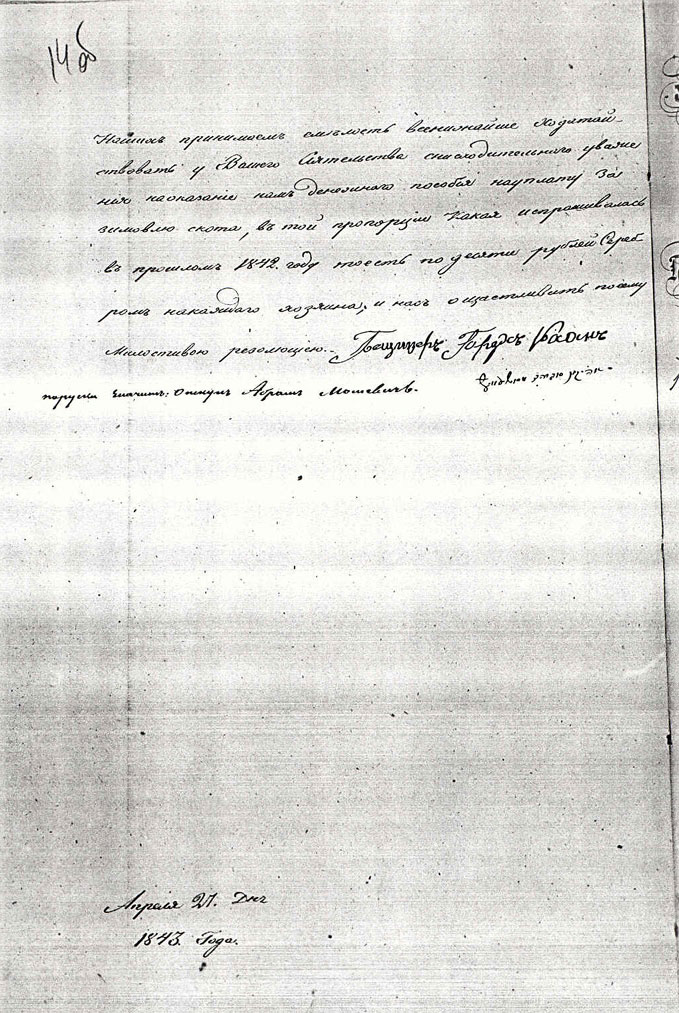 14 об
нашихъ принимаемъ смѣлость всенижайше ходатай-
ствовать у Вашего Сіятельства снисходительного уваже
нія наоказаніе намъ денежнаго пособія науплату за
зимовлю скота, въ той пропорціи какая испрашивалась
въ прошломъ 1842. году тоесть по десяти рублей Сереб-
ромъ накаждаго хозяина, и насъ ощастливить посему
Милостивою резолюціею.
поруски значитъ: Опекунъ Абрамъ Мошевичъ.
Апреля 27. Дня
1843. Года.